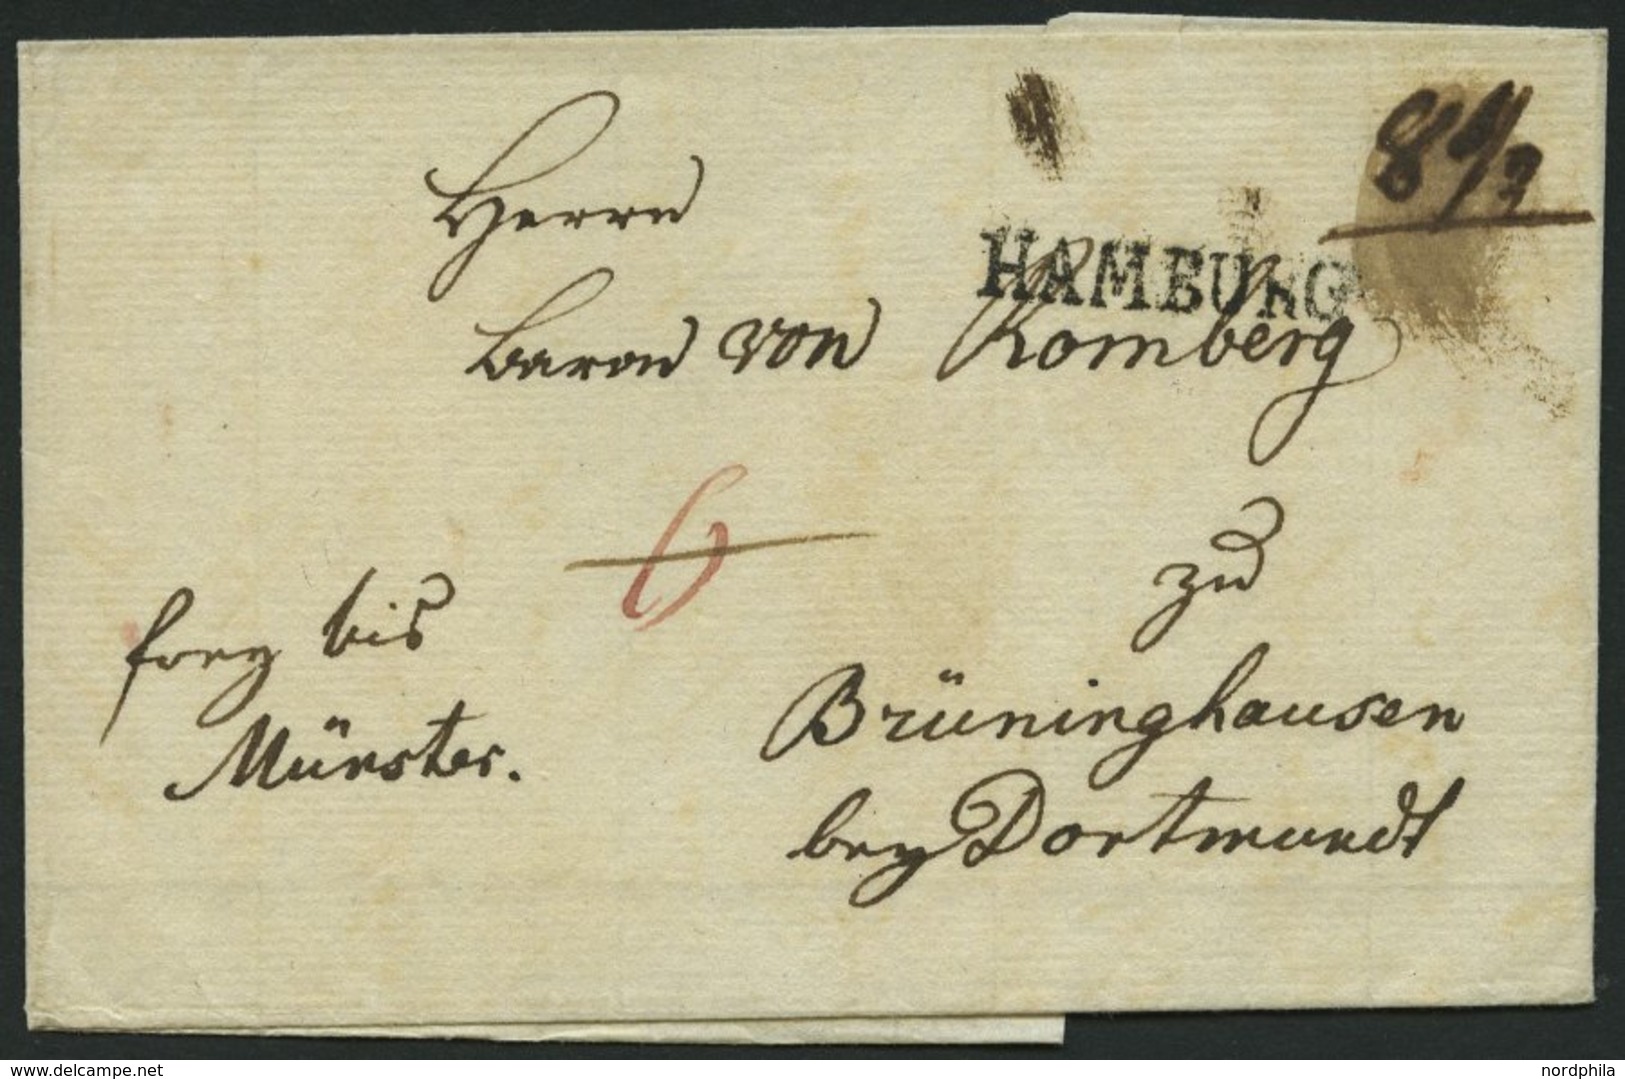 8 1/2
HAMBURG
Herrn
Baron von Romberg
6
zu
frey bis
Münster.
Brüninghausen
bey Dortmundt
delcampe.net
nordphila